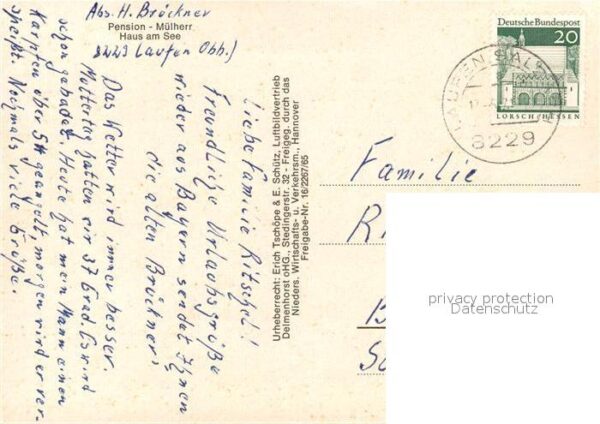 Abs. H. Brückner
Pension - Mülherr
Haus am See
8223 Laufen Obb.)
Liebe Familie Ritschel!
Freundliche Urlaubsgrüße
wieder aus Bayern sendet Ihnen
die alten Brückner,
Das Wetter wird immer besser.
Muttertag hatten wir 37 Grad. Es wird
schon gebadet. Heute hat mein Mann einen
Karpfen über 5 ℔ geangelt, morgen wird er ver-
speißt. Nochmals viele Grüße.
Urheberrecht: Erich Tschöpe & E. Schütz, Luftbildvertrieb
Delmenhorst oHG., Stedingerstr. 32 - Freigeg. durch das
Nieders. Wirtschafts- u. Verkehrsm., Hannover
Freigabe-Nr. 16/2267/65
Deutsche Bundespost
20
LORSCH/HESSEN
LAUFEN SALZ
8229
Familie
R
B
privacy protection
Datenschutz